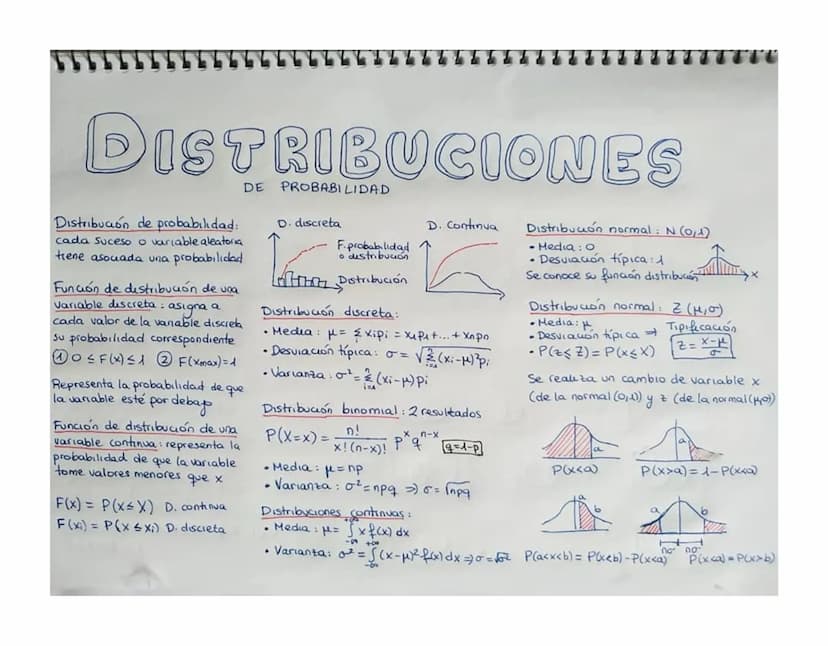 DISTRIBUCIONES
DE PROBABILIDAD
Distribución de probabilidad:
cada suceso o variable aleatoria
tiene asociada una probabilidad
Función de distribución de una
variable discreta: asigna a
cada valor de la variable discreta
su probabilidad correspondiente
① 0 ≤ F(x) ≤ 1 ② F(xmax)=1
Representa la probabilidad de que
la variable esté por debajo
Función de distribución de una
variable continua: representa la
probabilidad de que la variable
tome valores menores que x
F(x) = P(x ≤ X) D. continua
F(xi) = P(x ≤ xi) D. discreta
D. discreta
F. probabilidad
o distribución
Distribución
D. continua
Distribución discreta:
• Media: μ = Σ xipi = x1p1 + ... + xnpn
• Desviación típica: σ = √Σ(xi-μ)²pi
• Varianza: σ² = Σ(xi-μ)pi
Distribución binomial: 2 resultados
P(X=x) = n! / x!(n-x)! p^x q^n-x q=1-p
• Media: μ = np
• Varianza: σ² = npq ⇒ σ = √npq
Distribuciones continuas:
• Media: μ = ∫ x f(x) dx
• Varianta: σ² = ∫ (x-μ)² f(x) dx ⇒ σ = √σ²
Distribución normal: N(0,1)
• Media: 0
• Desviación típica: 1
Se conoce su función distribución
x
Distribución normal: Z(μ,σ)
• Media: μ
• Desviación típica ⇒ Tipificación
• P(z ≤ Z) = P(x ≤ X) Z = x-μ / σ
Se realiza un cambio de variable x
(de la normal (0,1)) y z (de la normal (μ,σ))
a
P(x<a)
a
P(x>a) = 1-P(x<a)
a b
P(a<x<b) = P(x<b) - P(x<a)
a b
nσ nσ
P(x<a) = P(x>b)